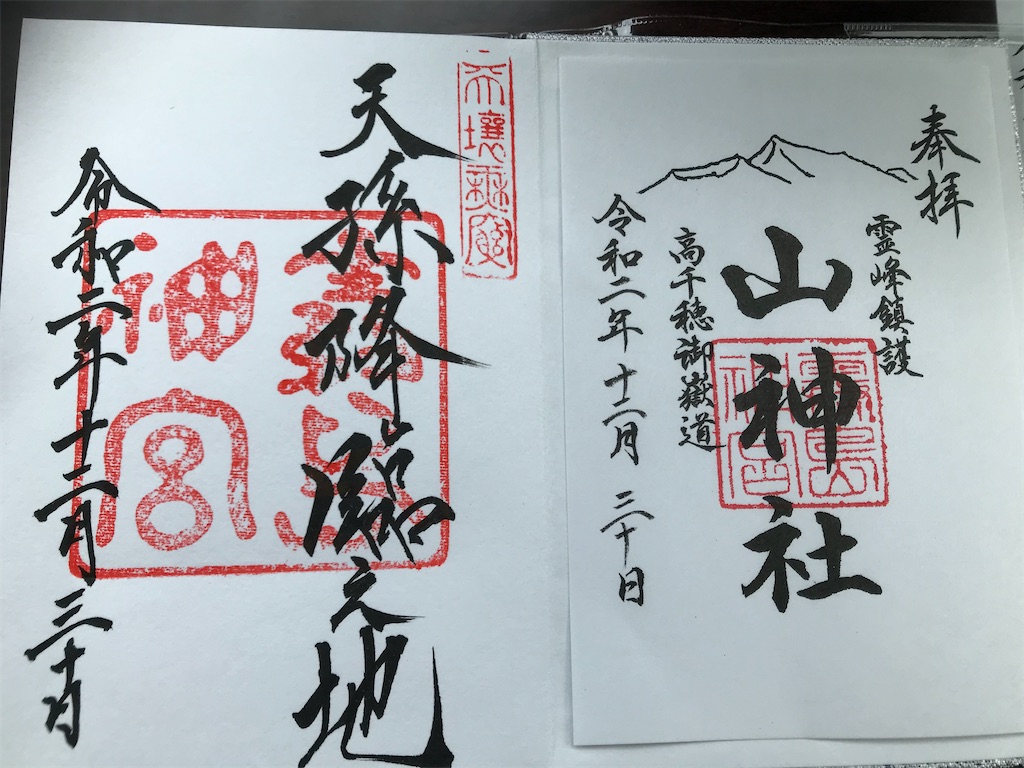 奉拝
霊峰鎮護
山神社
霧島神宮
高千穂御嶽道
令和二年十二月 三十日
天壌無窮
天孫降臨之地
霧島神宮
令和二年十二月三十日